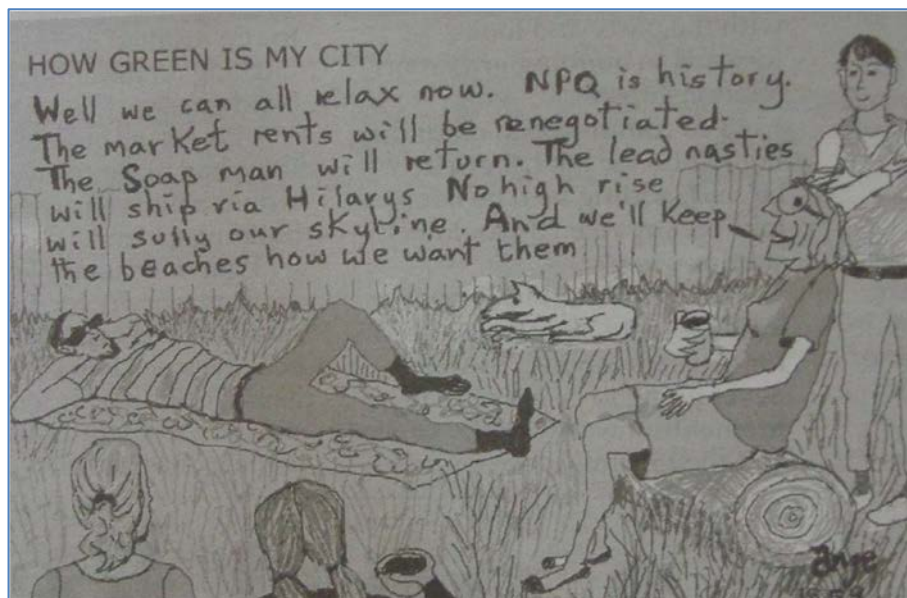 HOW GREEN IS MY CITY
Well we can all relax now. NPQ is history.
The market rents will be renegotiated.
The Soap man will return. The lead nasties
will ship via Hilarys No high rise
will sully our skyline. And we'll keep
the beaches how we want them
Ange